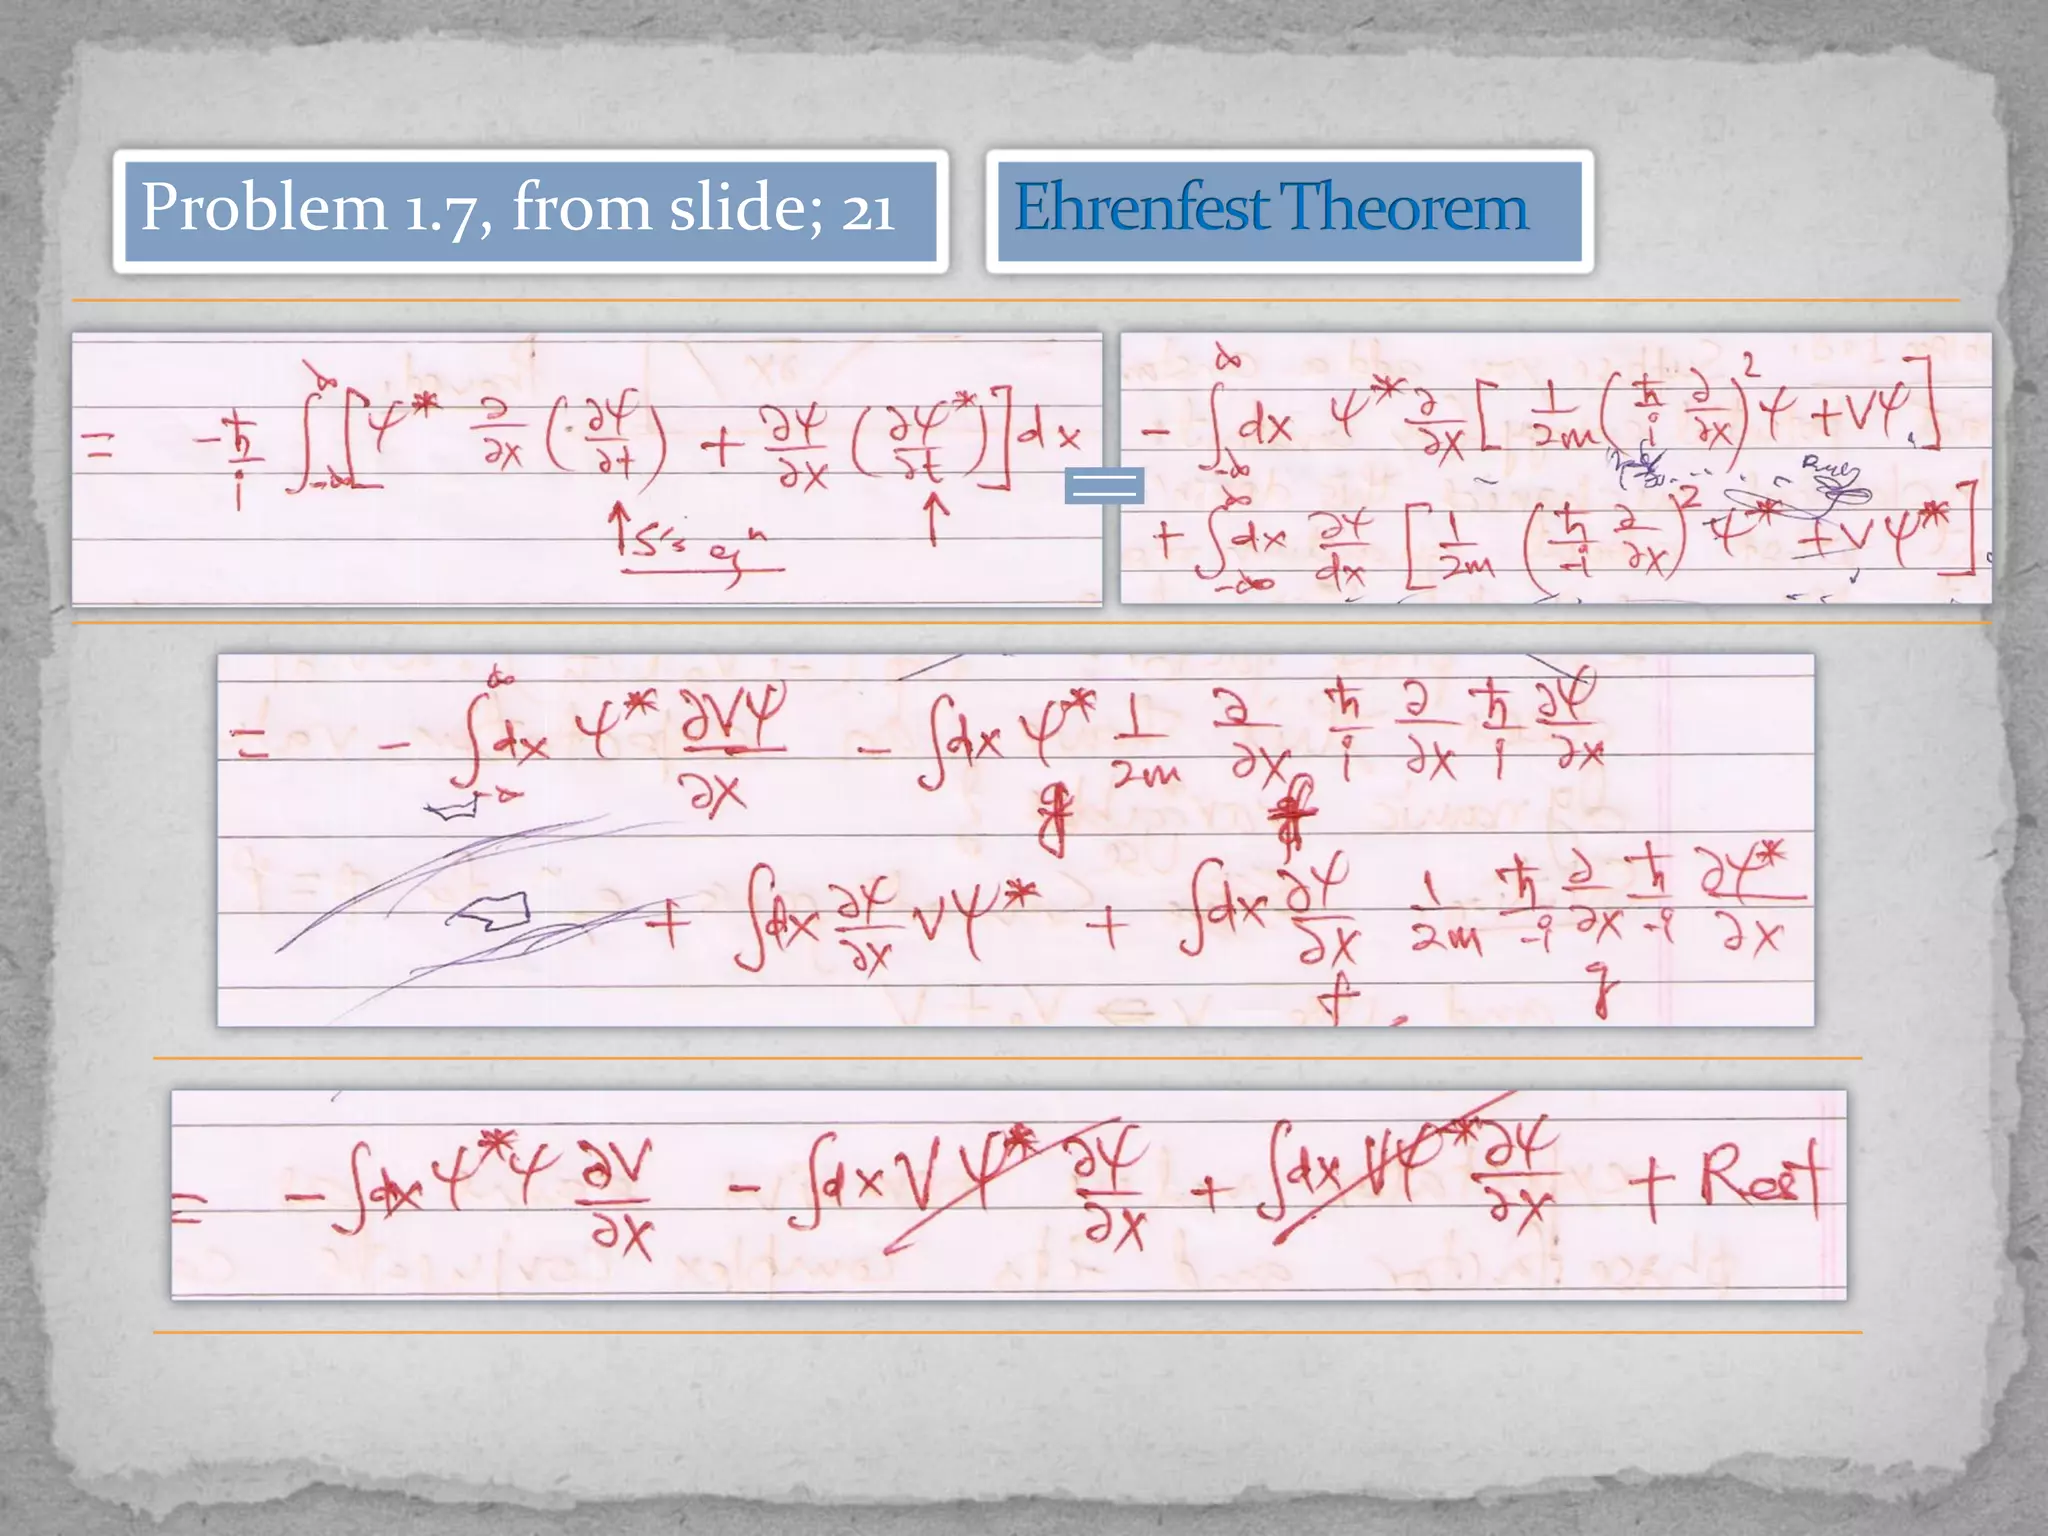 Problem 1.7, from slide; 21
Ehrenfest Theorem
= -ħ/i ∫_{-∞}^{∞} [ψ* ∂/∂x (∂ψ/∂t) + ∂ψ/∂x (∂ψ*/∂t)] dx
↑ S's eqⁿ ↑
=
- ∫_{-∞}^{∞} dx ψ* ∂/∂x [ 1/2m (ħ/i ∂/∂x)² ψ + Vψ ]
+ ∫_{-∞}^{∞} dx ∂ψ/dx [ 1/2m (ħ/-i ∂/∂x)² ψ* + Vψ* ]
= - ∫_{-∞}^{∞} dx ψ* ∂Vψ/∂x - ∫dx ψ* 1/2m ∂/∂x ħ/i ∂/∂x ħ/i ∂ψ/∂x
g f
+ ∫dx ∂ψ/∂x Vψ* + ∫dx ∂ψ/∂x 1/2m ħ/-i ∂/∂x ħ/-i ∂ψ*/∂x
f g
= - ∫dx ψ*ψ ∂V/∂x - ∫dx Vψ* ∂ψ/∂x + ∫dx Vψ* ∂ψ/∂x + Rest